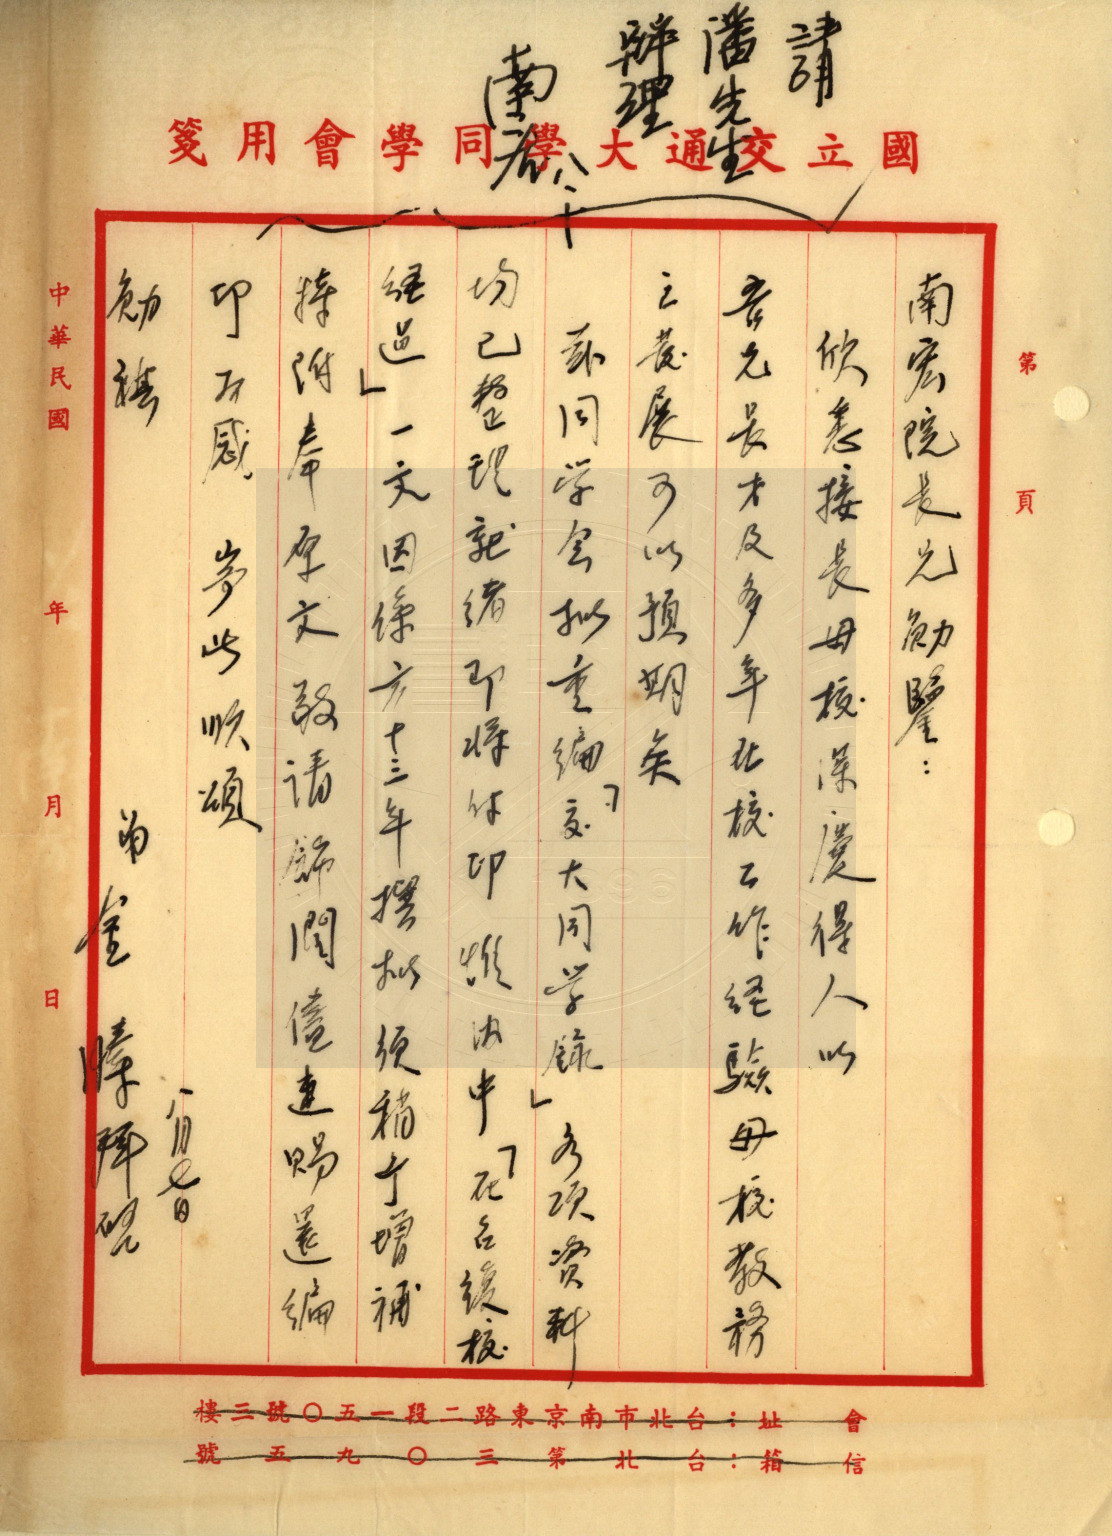 請
潘先生
辦理
南宏
八、十
國立交通大學同學會用箋
第 頁
南宏院長兄勛鑒：
欣悉接長母校深慶得人以
吾兄長才及多年在校工作經驗母校教務
之發展可以預期矣
同學会拟重編「交大同学錄」各項資料
均已整理就緒即將付印惟內中「在台復校
經過」一文因係於十三年撰拟須稍予增補
特附奉原文敬請飾潤儘速賜還編
印為感 耑此順頌
勛祺
弟 金 拜啓
八月七日
中華民國 年 月 日
會址：台北市南京東路二段一五〇號三樓
信箱：台北第三〇九五號